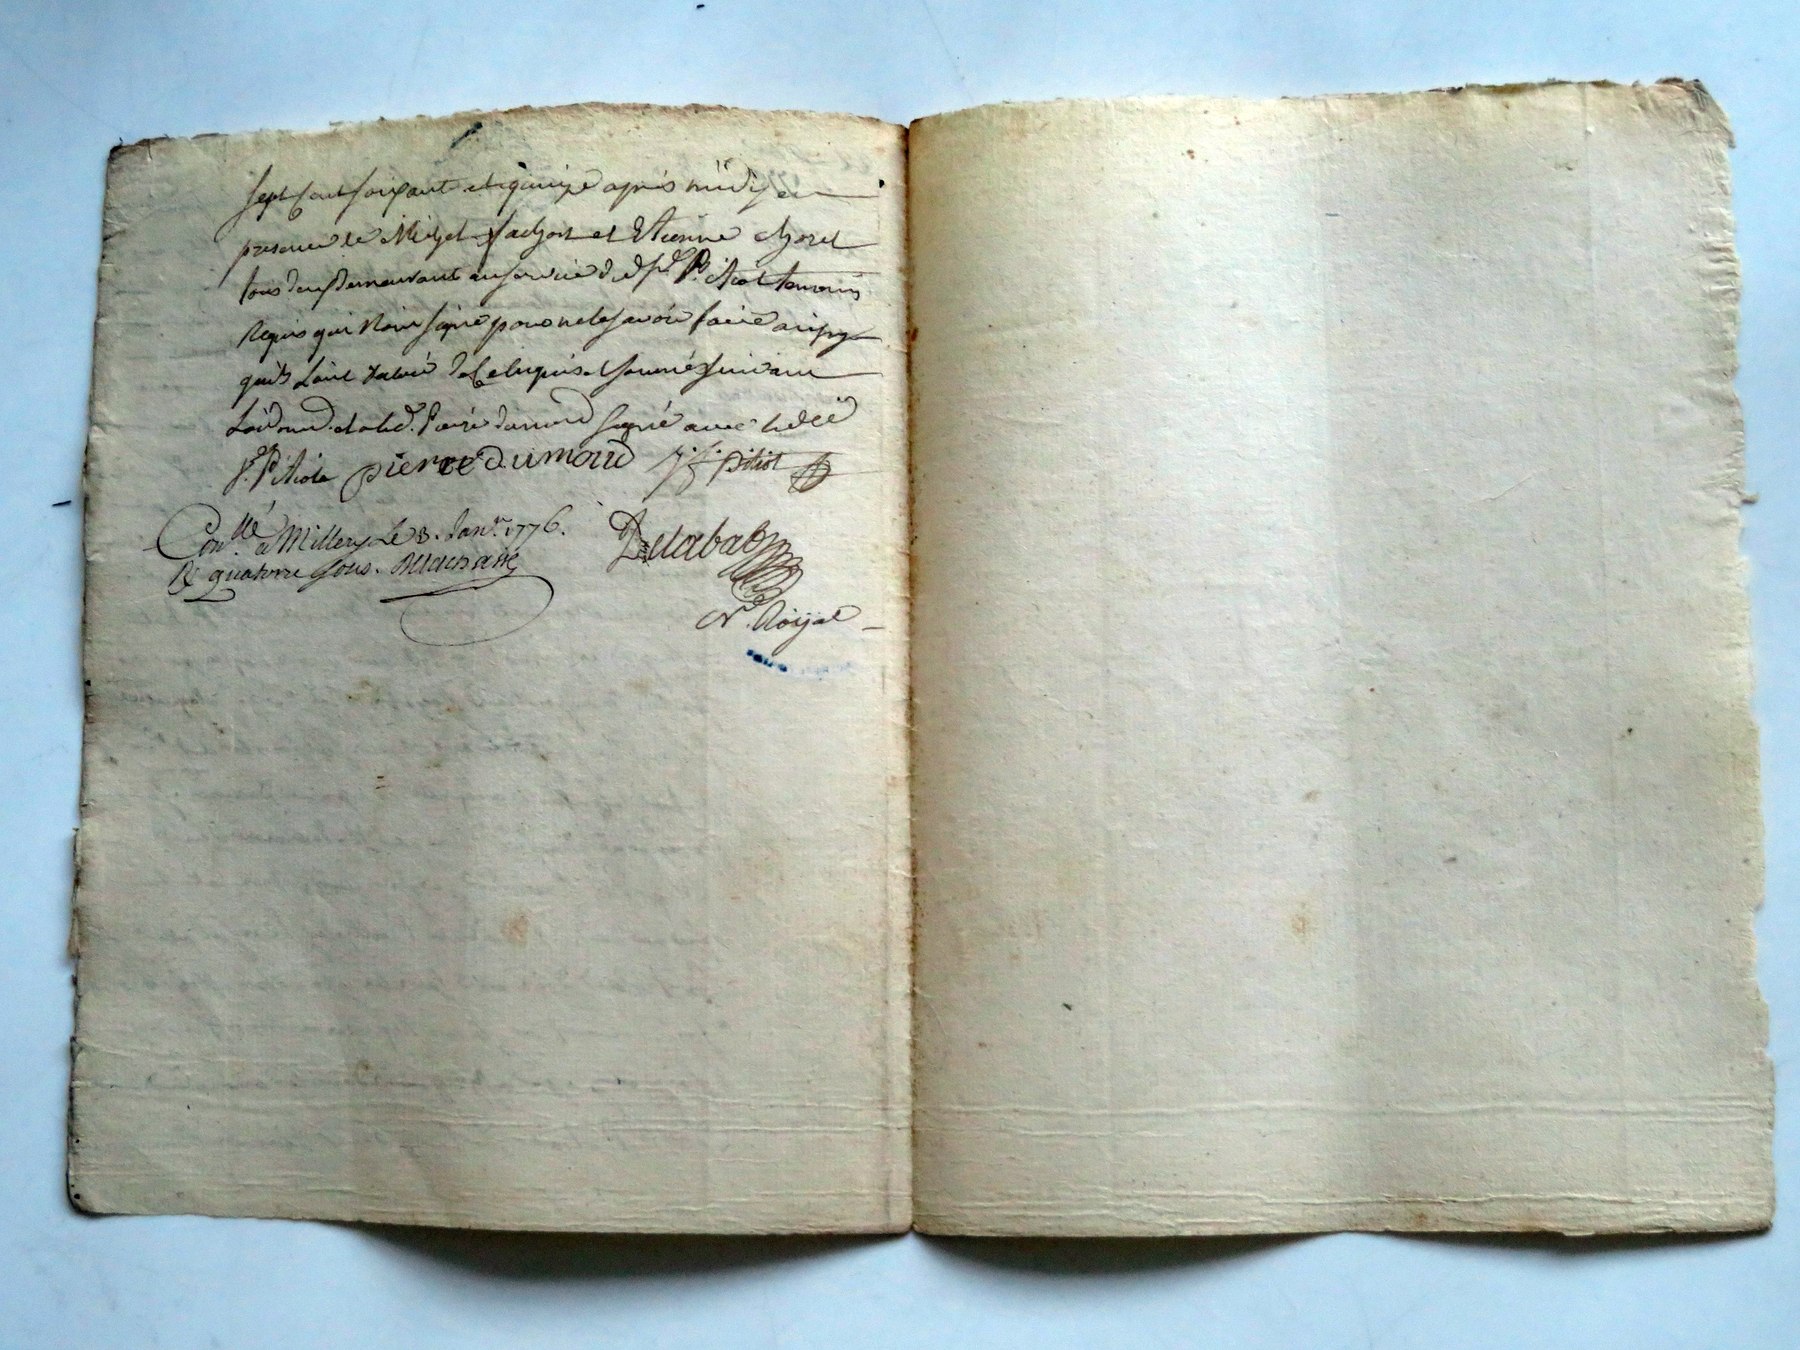 Sept Cent Soixante et quinze après midy en
presence de Michel et Etienne
tous deux demeurants au service dud. Sr. Pitiot temoins
Requis qui n'ont signé pour ne le savoir faire ainsy
qu'ils L'ont declaré de Ce enquis et sommés suivant
L'ordonn. et a led. Pierre Dumond signé avec lesd.
Sr. Pitiot pierre Dumond J: f: pitiot
Conllé. a Millery Le 3. Janr. 1776.
R quatorze sous.
Delabat
Nre. Roÿal